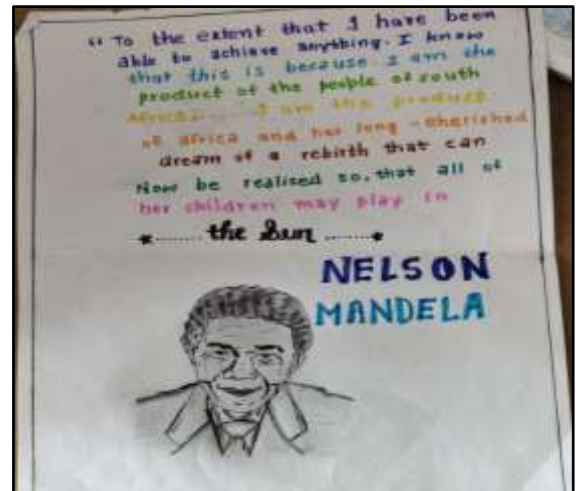 “ To the extent that I have been
able to achieve anything. I know
that this is because I am the
product of the people of south
Africa..... I am the product
of africa and her long -cherished
dream of a rebirth that can
Now be realised so, that all of
her children may play in
*........ the Sun .......*
NELSON
MANDELA